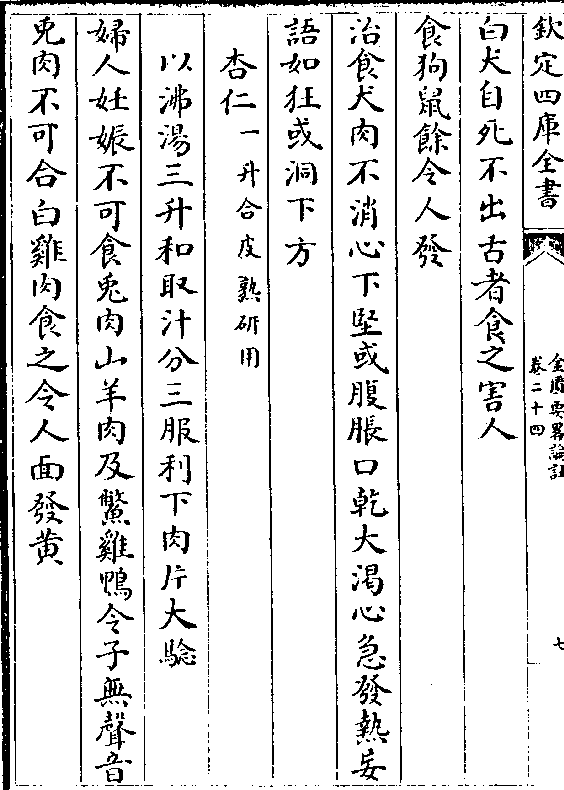 欽定四庫全書
金匱要畧論註
卷二十四
七
白犬自死不出舌者食之害人
食狗鼠餘令人發
治食犬肉不消心下堅或腹脹口乾大渴心急發熱妄
語如狂或洞下方
杏仁一升合皮熟研用
以沸湯三升和取汁分三服利下肉片大驗
婦人妊娠不可食兎肉山羊肉及鱉雞鴨令子無聲音
兎肉不可合白雞肉食之令人面發黄